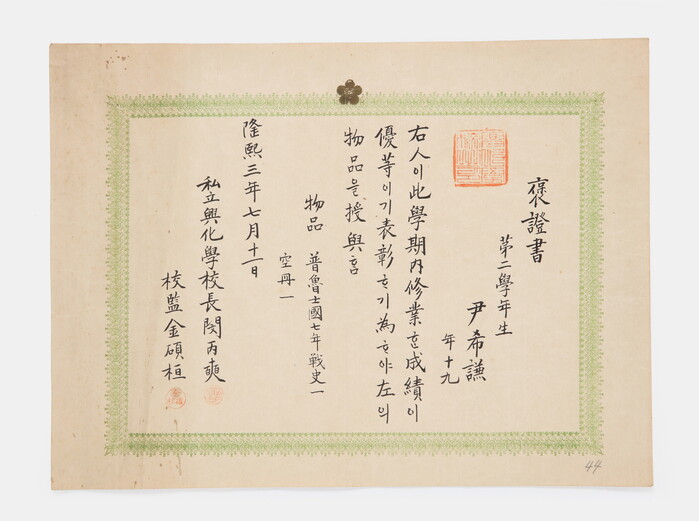 褒證書
第二學年生
尹希謙
年十九
右人이此學期內修業ᄒᆞᆫ成績이
優等이기表彰ᄒᆞ기爲ᄒᆞ야左의
物品을授與홈
物品 普魯士國七年戰史一
空冊一
隆熙三年七月十二日
私立興化學校長閔丙奭
校監金碩桓
44